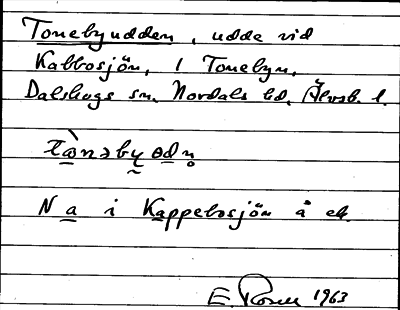 Tonebyudden, udde vid
Kabbosjön, i Tonebyn,
Dalskogs sn. Nordals hd. Älvsb. l.
Na i Kappebosjön å ek.
E. Rosell 1963